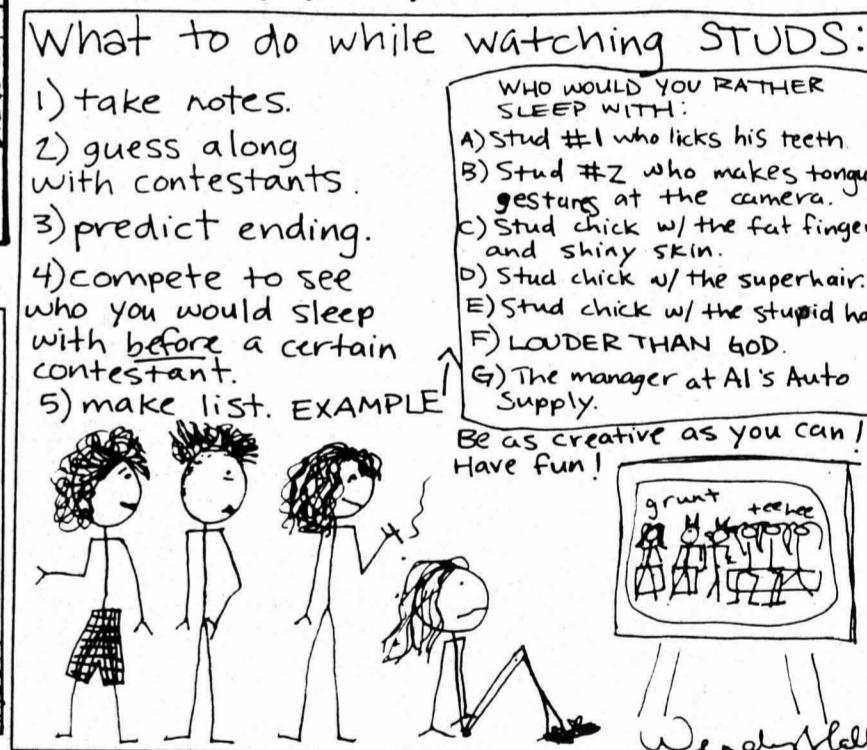 What to do while watching STUDS:
1) take notes.
2) guess along
with contestants.
3) predict ending.
4) compete to see
who you would sleep
with before a certain
contestant.
5) make list. EXAMPLE
WHO WOULD YOU RATHER
SLEEP WITH:
A) Stud #1 who licks his teeth
B) Stud #2 who makes
gestures at the camera.
C) Stud chick w/ the fat
and shiny skin.
D) Stud chick w/ the superhair.
E) Stud chick w/ the stupid
F) LOUDER THAN GOD.
G) The manager at Al's Auto
Supply.
Be as creative as you can!
Have fun!
grunt
teehee